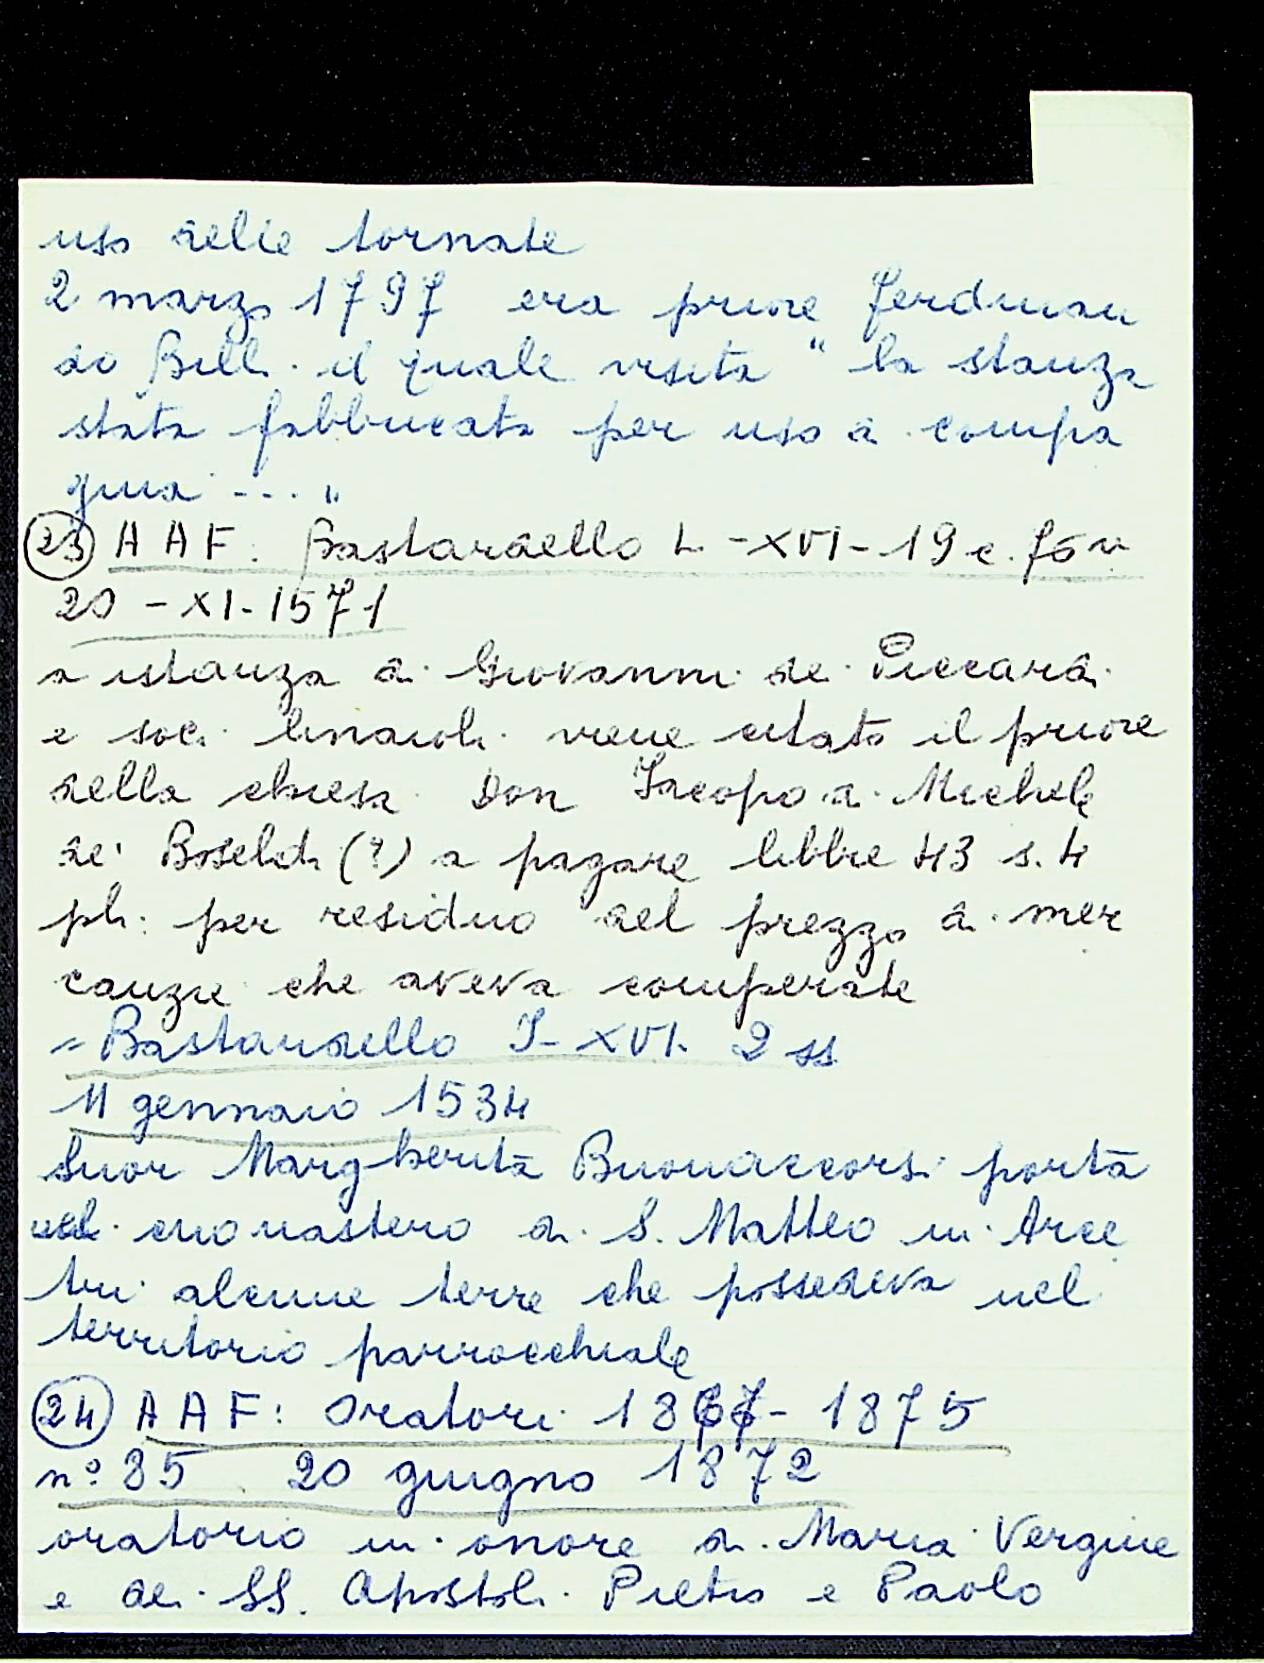 uso delle tornate
2 marzo 1797 era priore Ferdinan
do Billi il quale visita "la stanza
stata fabbricata per uso di compa
gnia ---- "
23 AAF. Bastardello L-XVI-19 c. 76 v
20-XI-1571
a istanza di Giovanni de Piccardi
e soci linaioli viene citato il priore
della chiesa Don Jacopo di Michele
de' (?) a pagare libbre 43 s. 4
pli: per residuo del prezzo di mer
canzie che aveva comperate
= Bastardello I-XVI. 2 ss
11 gennaio 1534
Suor Margherita Buonaccorsi porta
nel monastero di S. Matteo in Arce
tri alcune terre che possedeva nel
territorio parrocchiale
24 AAF: Oratori 1867-1875
n° 35 20 giugno 1872
oratorio in onore di Maria Vergine
e dei SS. Apostoli Pietro e Paolo